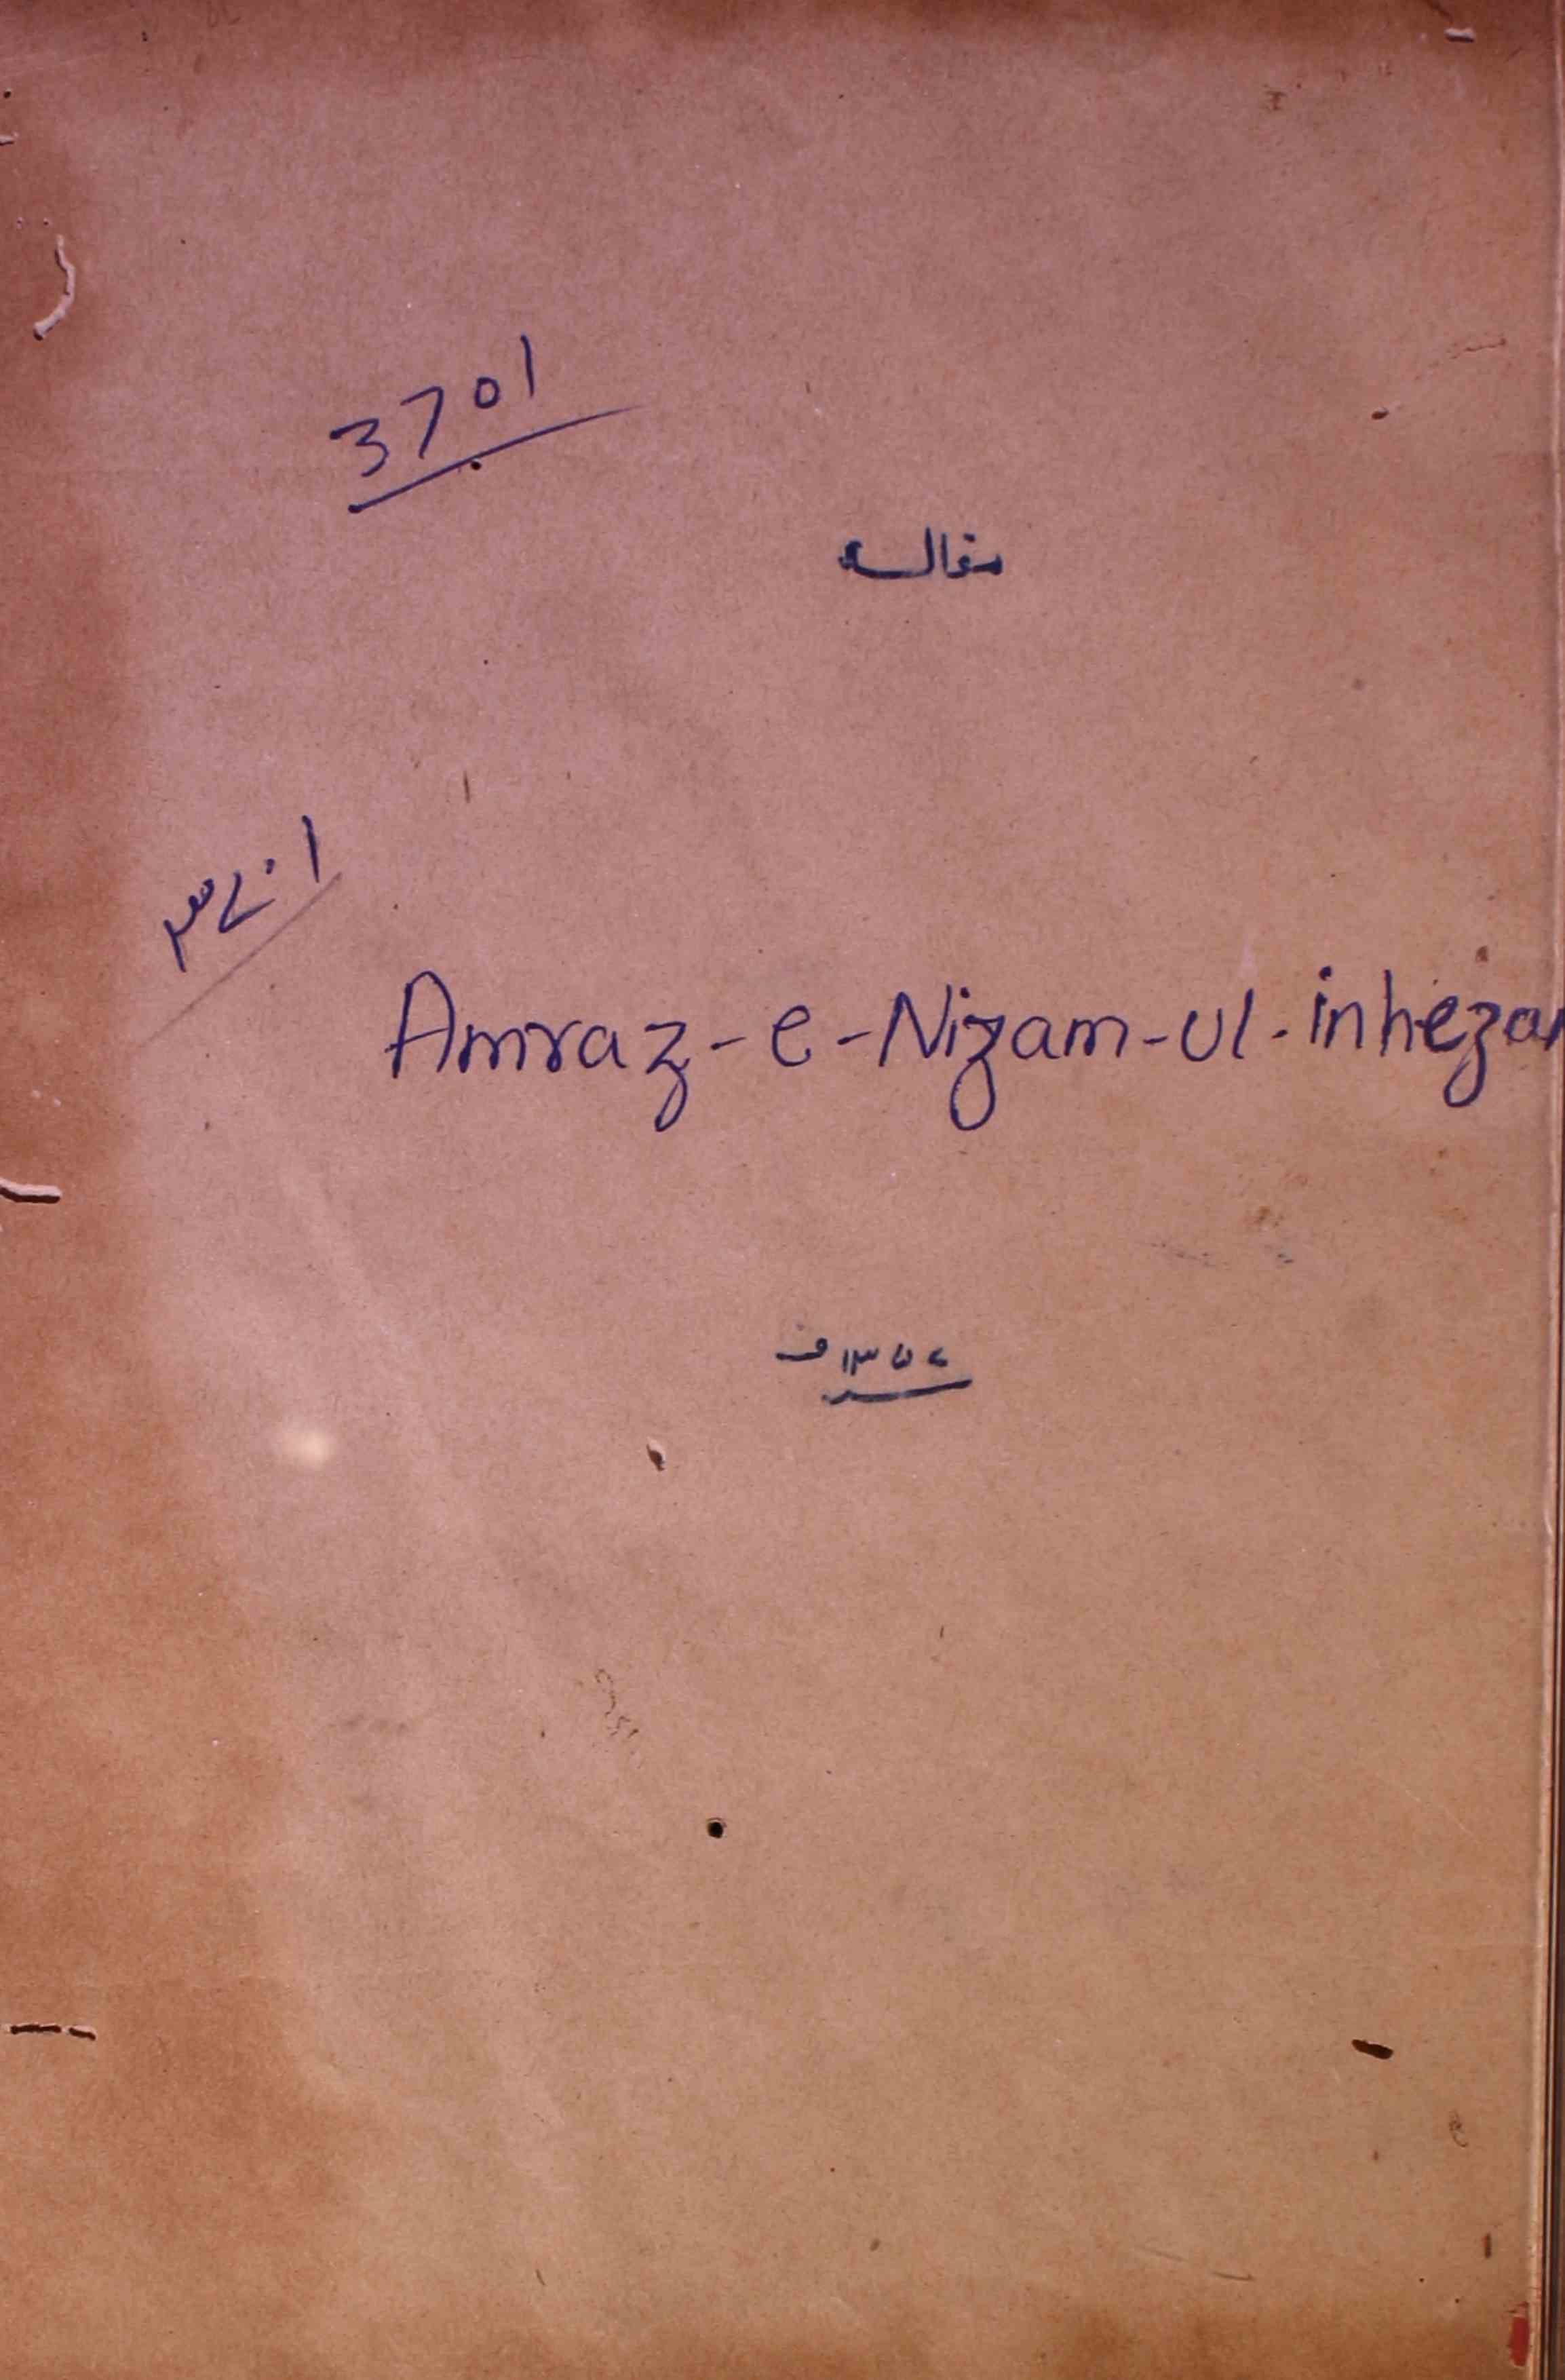 3701
مقالہ
۳۷۰۱
Amraz-e-Nizam-ul-inheza
۱۳۵۷ ف